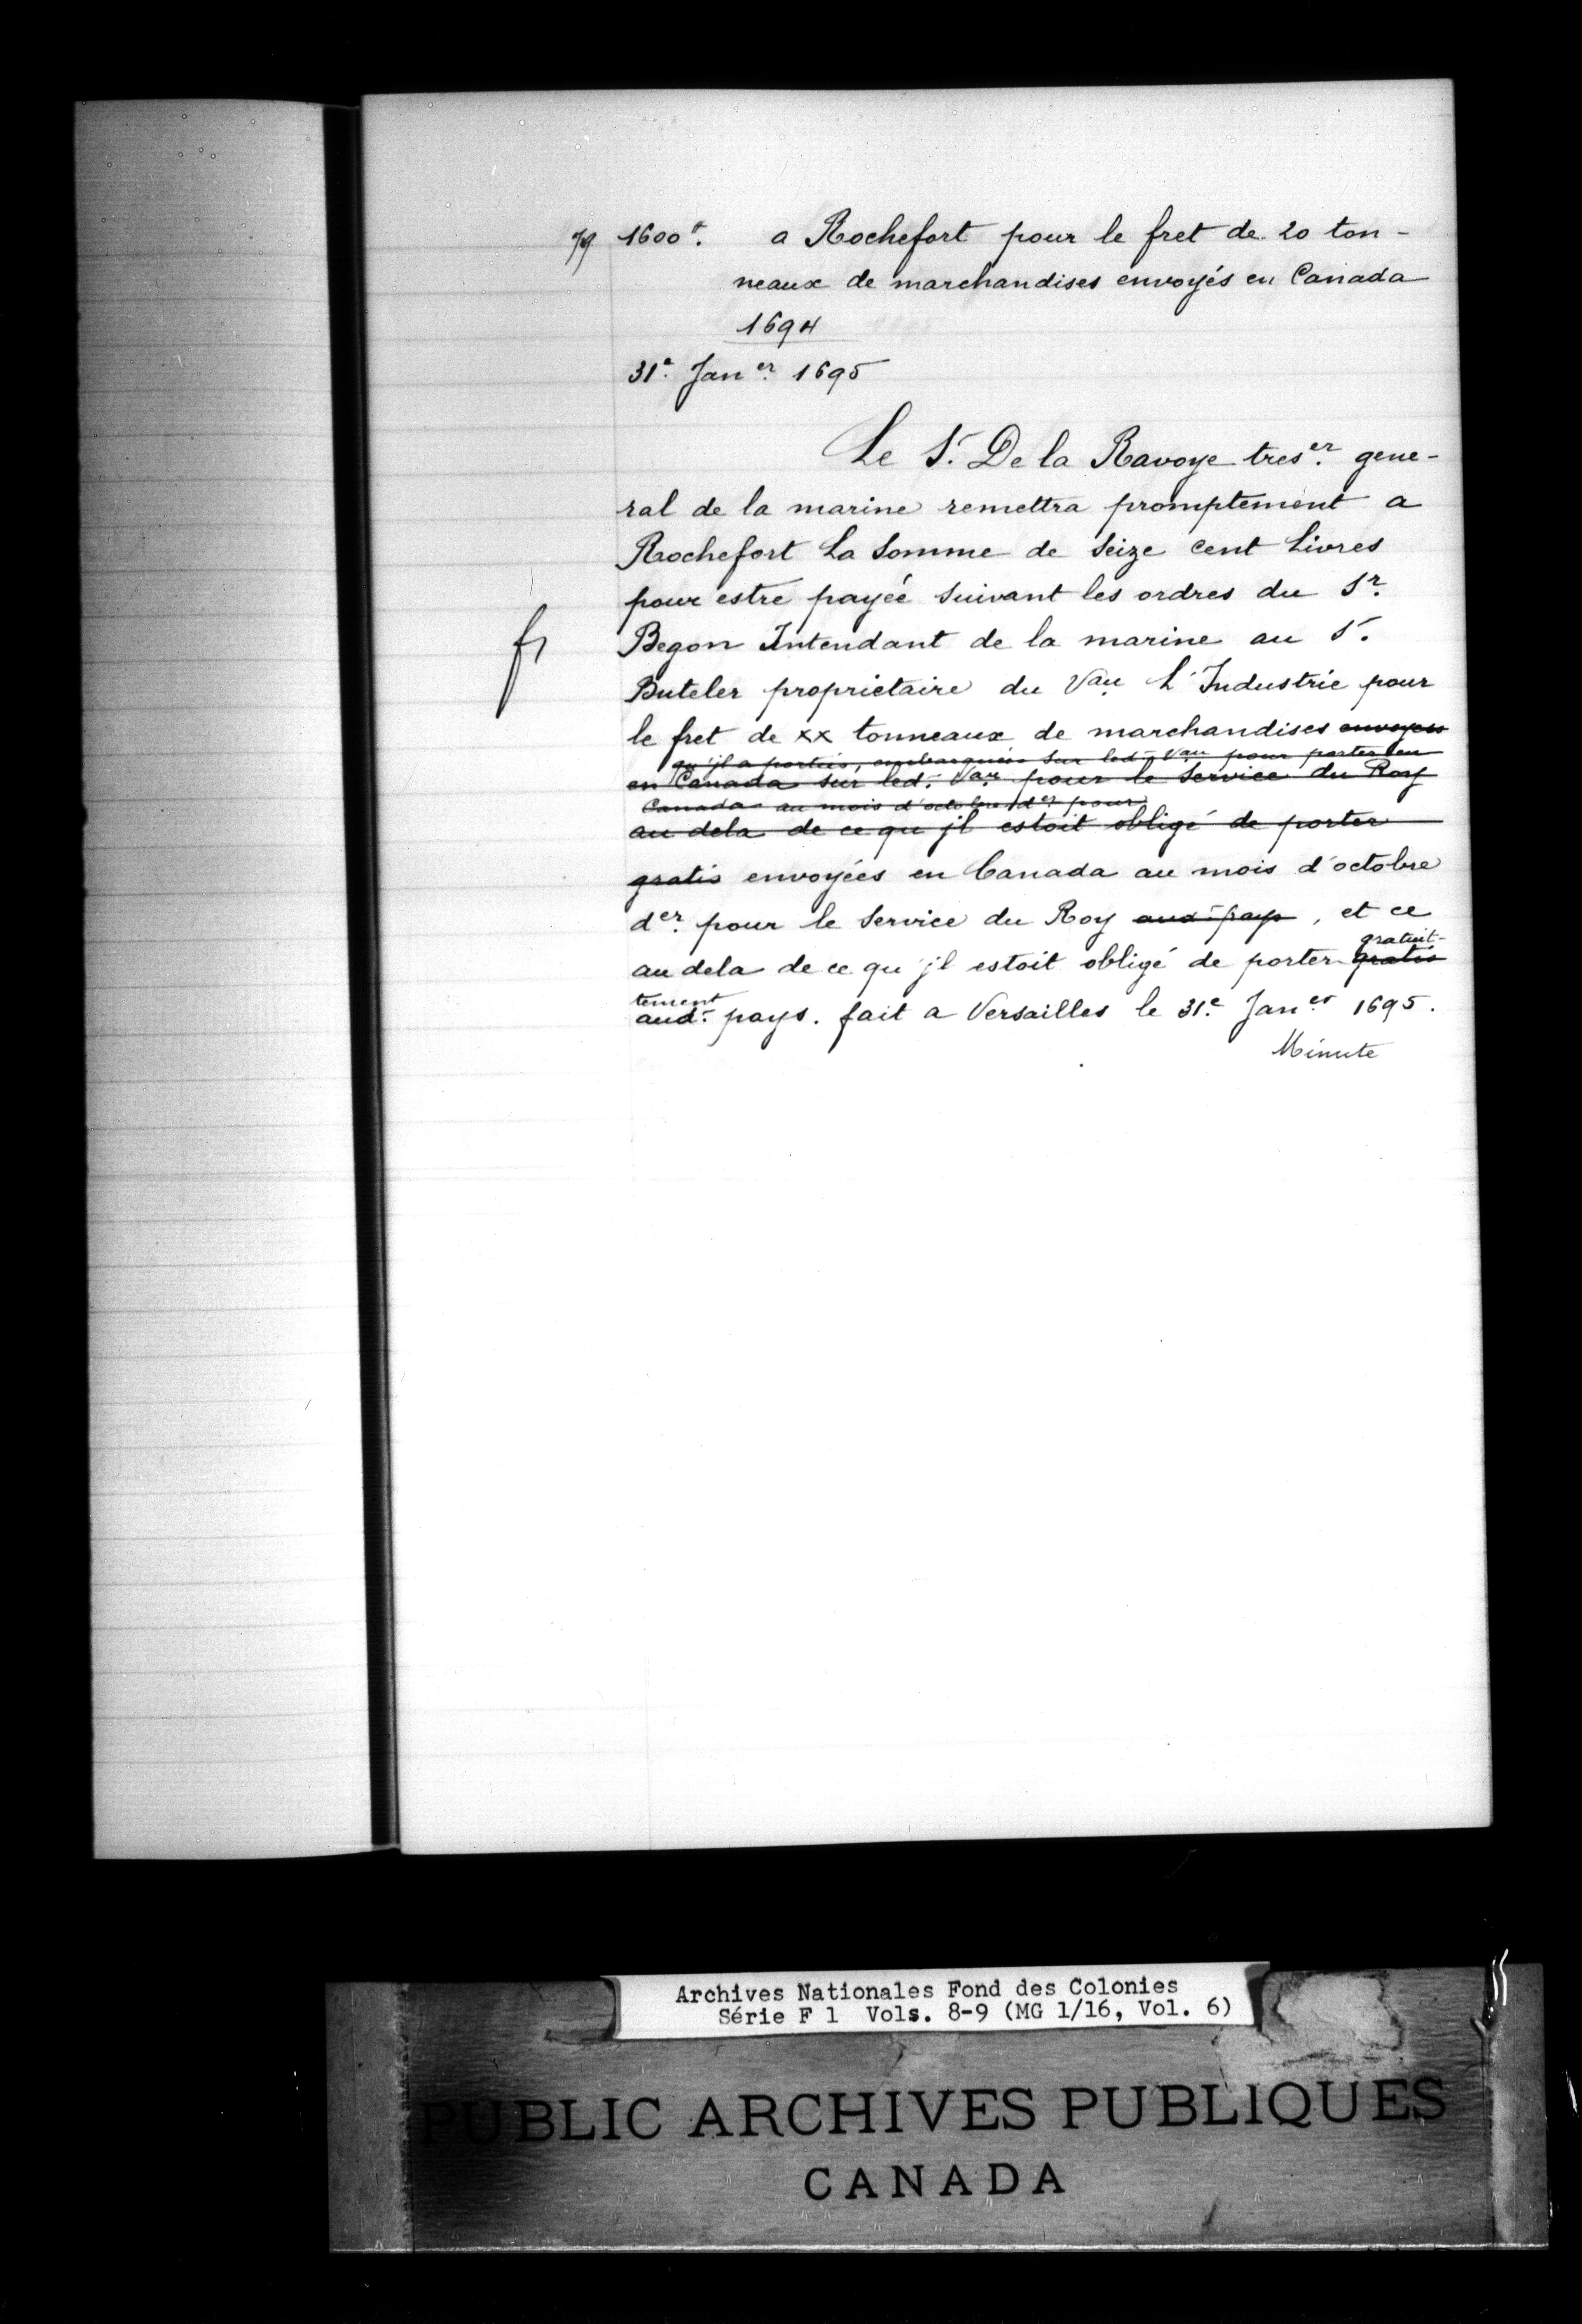 79 1600#. a Rochefort pour le fret de 20 ton-
neaux de marchandises envoyés en Canada
1694
31e. Janer. 1695
Le Sr. De la Ravoye treser. gene-
ral de la marine remettra promptement a
Rochefort La Somme de Seize Cent Livres
pour estre payée suivant les ordres du Sr.
Begon Intendant de la marine au Sr.
Buteler proprietaire du Vau L'Industrie pour
le fret de xx tonneaux de marchandises envoyees
qu'jl a portées, embarquées Sur led. Vau pour porter en
en Canada sur led. Vau pour le Service du Roy
Canada au mois d'octobre der pour
au dela de ce qu jl estoit obligé de porter
gratis envoyées en Canada au mois d'octobre
der. pour le Service du Roy aud. pays, et ce
gratuit-
au dela de ce qu'jl estoit obligé de porter gratis
tement
aud. pays. fait a Versailles le 31e. Janer 1695.
Minute
Archives Nationales Fond des Colonies
Série F 1 Vols. 8-9 (MG 1/16, Vol. 6)
PUBLIC ARCHIVES PUBLIQUES
CANADA